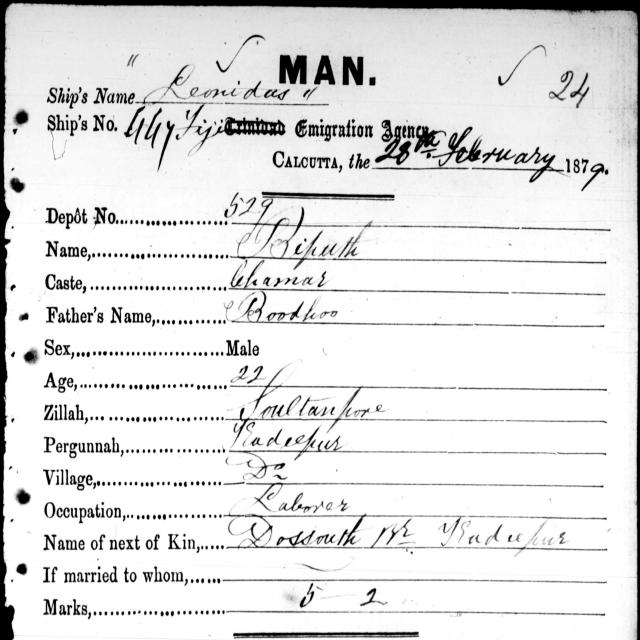 MAN.
24
Ship's Name " Leonidas "
Ship's No. 447 Fiji Trinidad Emigration Agency
CALCUTTA, the 28th February 1879.
Depôt No. 529
Name, Bipath
Caste, Chamar
Father's Name, Boodhoo
Sex, Male
Age, 22
Zillah, Soultanpore
Pergunnah, Kadeepur
Village, Do
Occupation, Laborer
Name of next of Kin, Dossouth Br Kadeepur
If married to whom,
Marks, 5 - 2